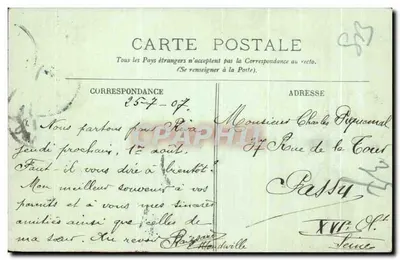 CARTE POSTALE
Tous les Pays étrangers n'acceptent pas la Correspondance au recto.
(Se renseigner à la Poste).
CORRESPONDANCE
25-7-07.
Nous partons pour
jeudi prochain, 1er août.
Faut-il vous dire à bientôt?
Mon meilleur souvenir à vos
parents et à vous mes sincères
amitiés ainsi que celles de
ma sœur. Au revoir
ADRESSE
Monsieur Charles Piquemal
37 Rue de la Tour
Passy
XVIe At
Seine